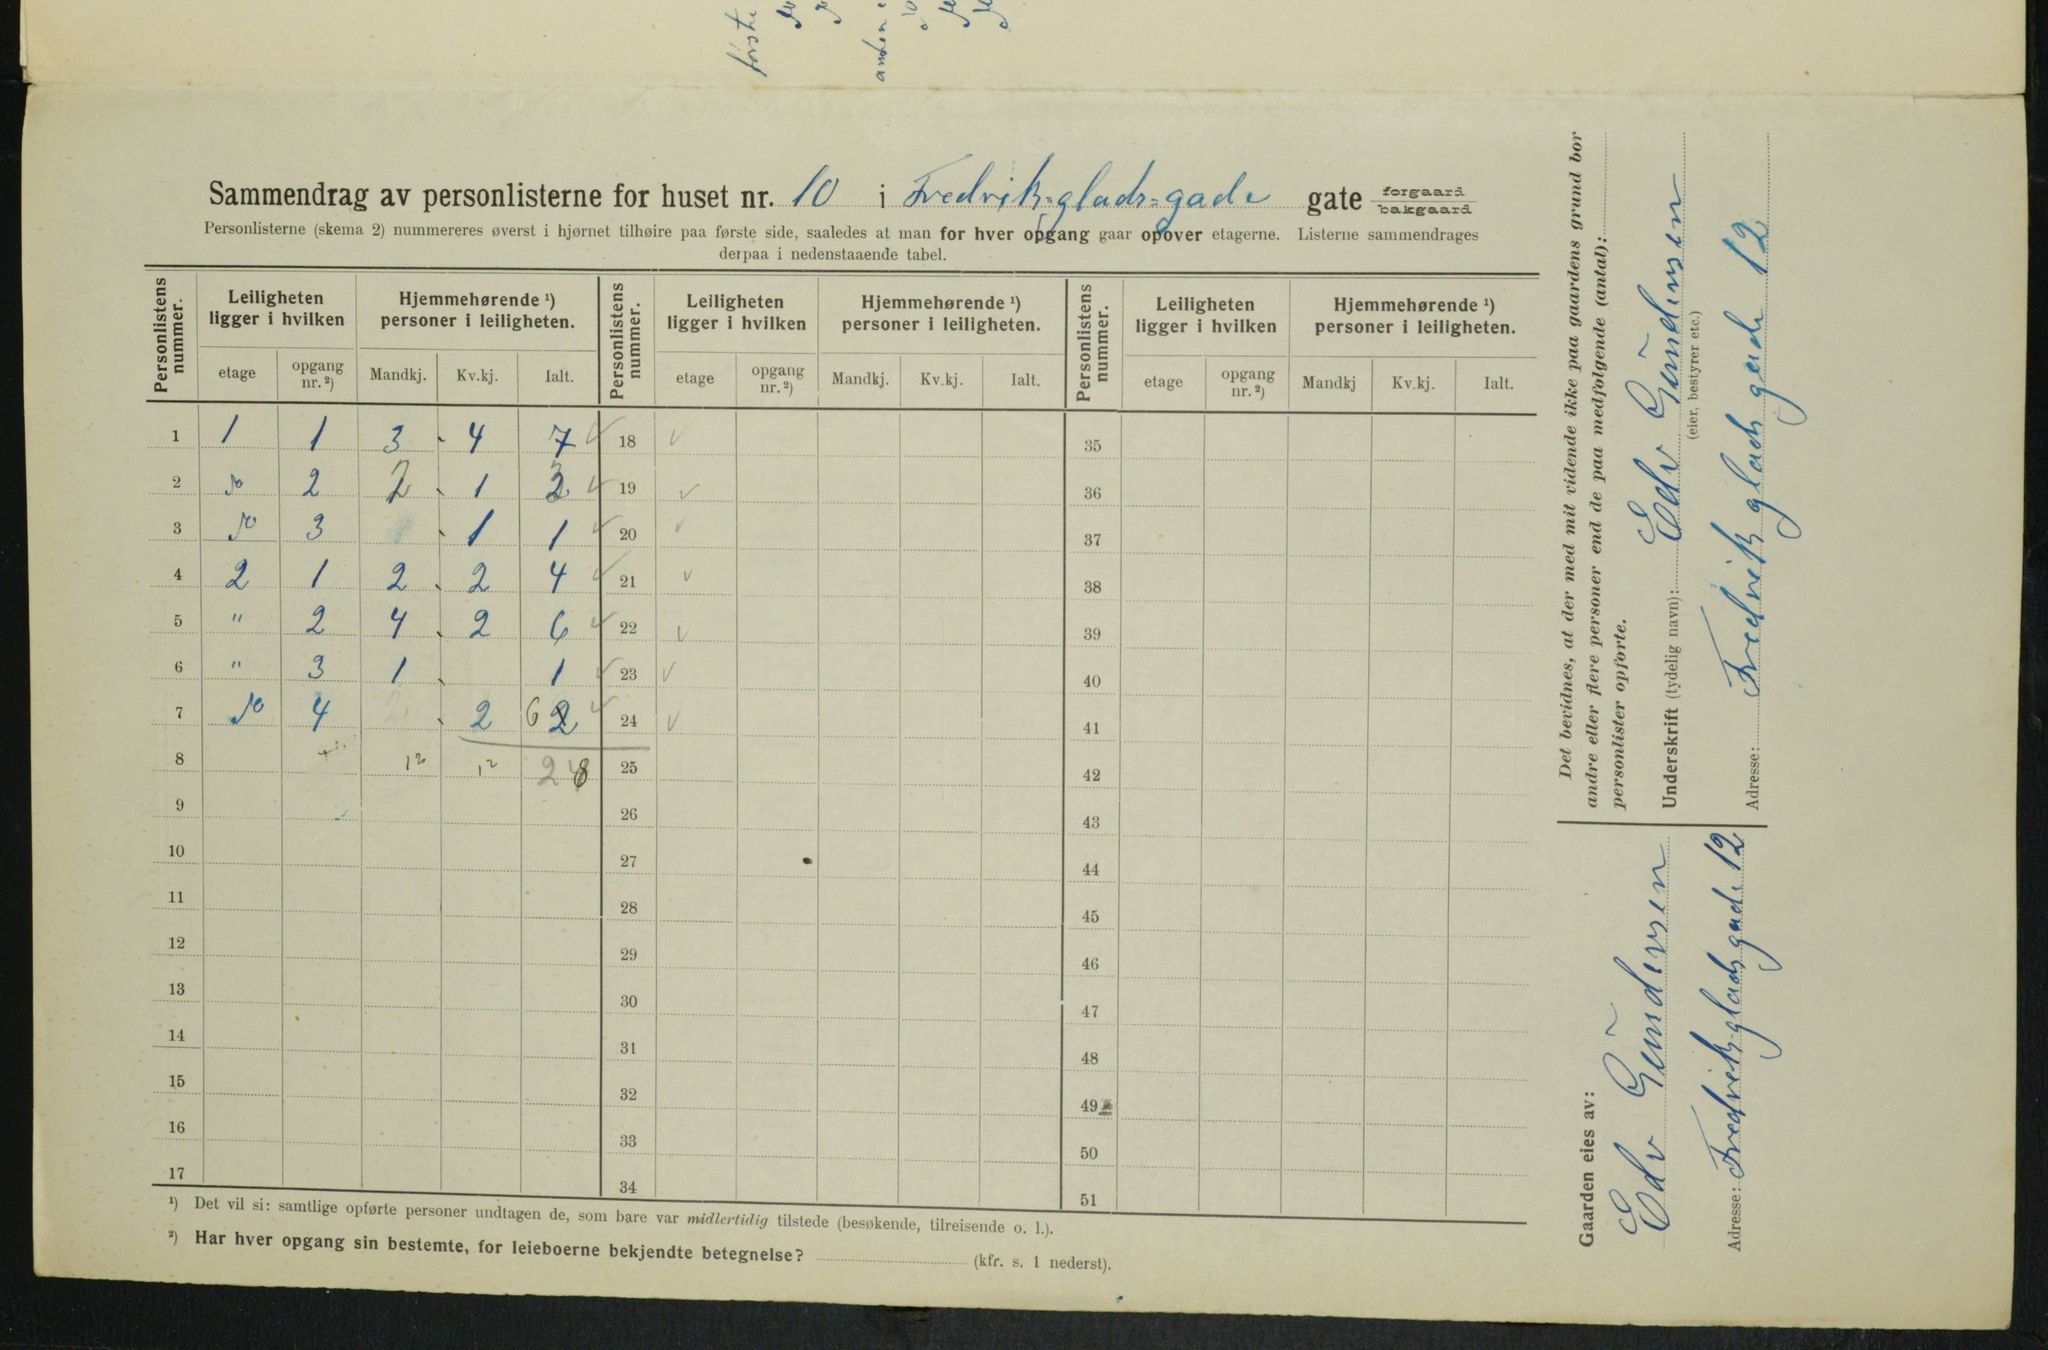 første
anden
Sammendrag av personlisterne for huset nr. 10 i Fredrik-glads-gade gate forgaard bakgaard
Personlisterne (skema 2) nummereres øverst i hjørnet tilhøire paa første side, saaledes at man for hver opgang gaar opover etagerne. Listerne sammendrages
derpaa i nedenstaaende tabel.
Personlistens nummer. Leiligheten ligger i hvilken Hjemmehørende ¹) personer i leiligheten. Personlistens nummer. Leiligheten ligger i hvilken Hjemmehørende ¹) personer i leiligheten. Personlistens nummer. Leiligheten ligger i hvilken Hjemmehørende ¹) personer i leiligheten.
etage opgang nr. ²) Mandkj. Kv.kj. Ialt. etage opgang nr. ²) Mandkj. Kv.kj. Ialt. etage opgang nr. ²) Mandkj Kv.kj. Ialt.
1 1 1 3 4 7 ✓ 18 ✓ 35
2 do 2 2 1 3 ✓ 19 ✓ 36
3 do 3 1 1 ✓ 20 ✓ 37
4 2 1 2 2 4 ✓ 21 ✓ 38
5 " 2 4 2 6 ✓ 22 ✓ 39
6 " 3 1 1 ✓ 23 ✓ 40
7 do 4 2 6 2 ✓ 24 ✓ 41
8 12 12 25 42
9 26 43
10 27 44
11 28 45
12 29 46
13 30 47
14 31 48
15 32 49
16 33 50
17 34 51
¹) Det vil si: samtlige opførte personer undtagen de, som bare var midlertidig tilstede (besøkende, tilreisende o. l.).
²) Har hver opgang sin bestemte, for leieboerne bekjendte betegnelse? (kfr. s. 1 nederst).
Det bevidnes, at der med mit vidende ikke paa gaardens grund bor
andre eller flere personer end de paa medfølgende (antal):
personlister opførte.
Underskrift (tydelig navn): Edv Gundersen
(eier, bestyrer etc.)
Adresse: Fredrik glads gade 12
Gaarden eies av:
Edv Gundersen
Adresse: Fredrik glads gade 12